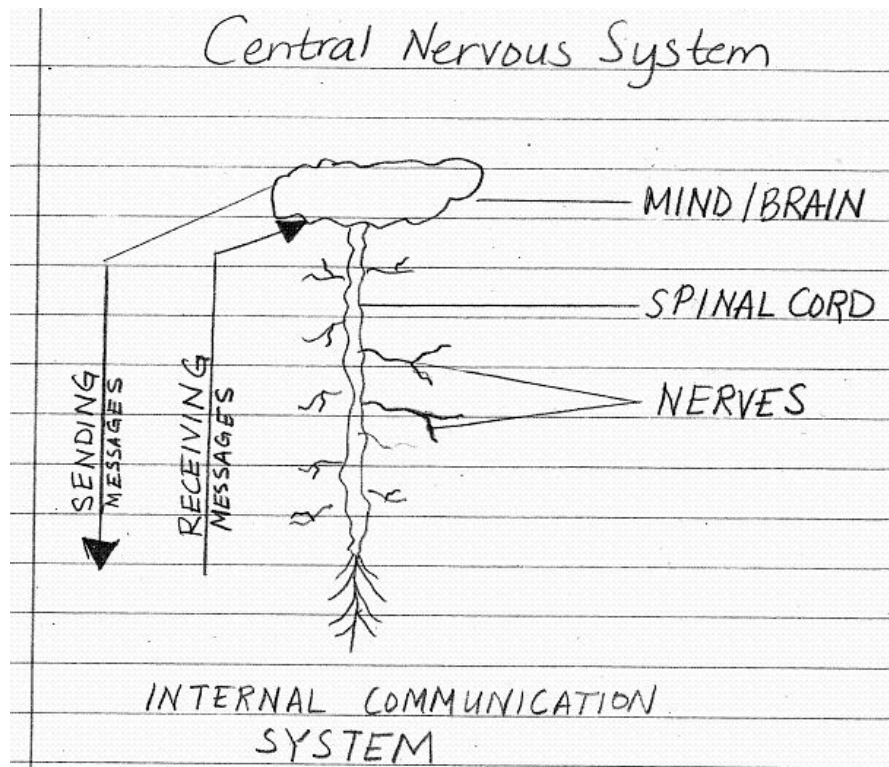 Central Nervous System
MIND/BRAIN
SPINAL CORD
NERVES
SENDING
MESSAGES
RECEIVING
MESSAGES
INTERNAL COMMUNICATION
SYSTEM